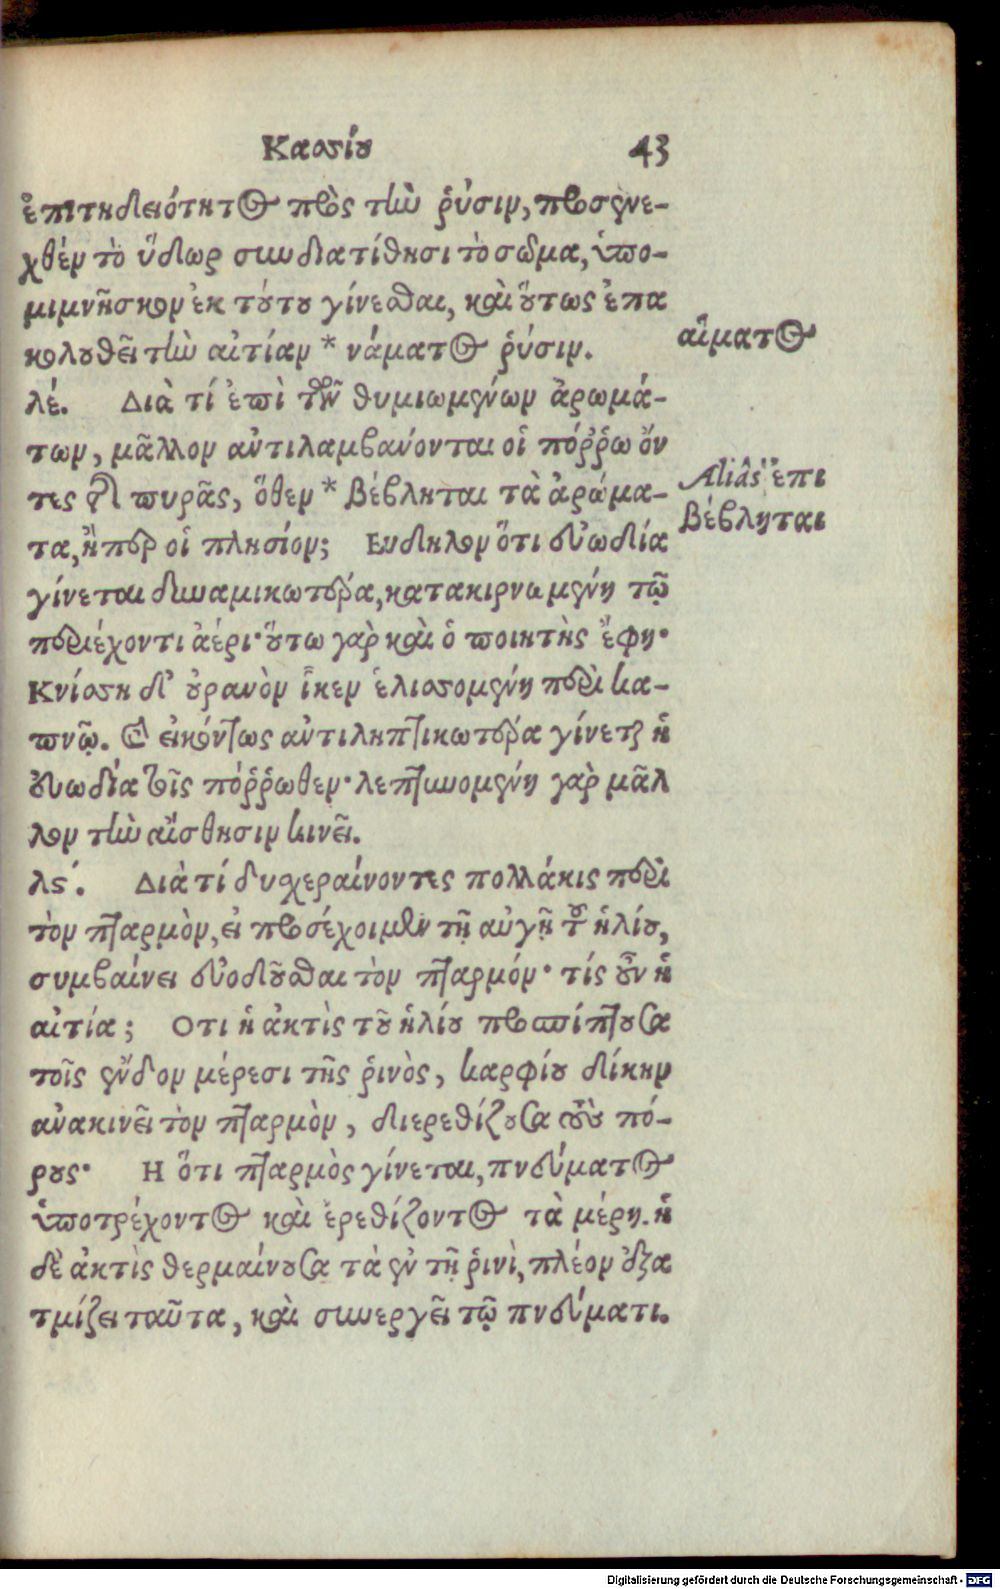 Κασσίου 43
ἐπιτηδειότητος πρὸς τὴν ῥύσιν, προσενε-
χθὲν τὸ ὕδωρ συνδιατίθησι τὸ σῶμα, ὑπο-
μιμνῆσκον ἐκ τούτου γίνεσθαι, καὶ οὕτως ἐπα
κολουθεῖ τὴν αἰτίαν * νάματος ῥύσιν.
αἵματος
λέ. Διὰ τί ἐπὶ τῶν θυμιωμένων ἀρωμά-
των, μᾶλλον ἀντιλαμβάνονται οἱ πόῤῥω ὄν
τες τῆς πυρᾶς, ὅθεν * βέβληται τὰ ἀρώμα-
Aliâs ἐπι
βέβληται
τα, ἤπερ οἱ πλησίον; Ευδηλον ὅτι εὐωδία
γίνεται δυναμικωτέρα, κατακιρνωμένη τῷ
περιέχοντι ἀέρι· οὕτω γὰρ καὶ ὁ ποιητὴς ἔφη·
Κνίσση δ' οὐρανὸν ἷκεν ἑλισσομένη περὶ κα-
πνῷ. καὶ εἰκόντως ἀντιληπτικωτέρα γίνεται ἡ
εὐωδία τοῖς πόῤῥωθεν· λεπτυνομένη γὰρ μᾶλ
λον τὴν αἴσθησιν κινεῖ.
λϛ΄. Διὰ τί δυχεραίνοντες πολλάκις περὶ
τὸν πταρμὸν, εἰ προσέχοιμεν τῇ αὐγῇ τοῦ ἡλίου,
συμβαίνει εὐοδοῦσθαι τὸν πταρμόν· τίς οὖν ἡ
αἰτία; Οτι ἡ ἀκτὶς τοῦ ἡλίου προσπίπτουσα
τοῖς ἔνδον μέρεσι τῆς ῥινὸς, καρφίου δίκην
ἀνακινεῖ τὸν πταρμὸν, διερεθίζουσα τοὺς πό-
ρους· Η ὅτι πταρμὸς γίνεται, πνεύματος
ὑποτρέχοντος καὶ ἐρεθίζοντος τὰ μέρη. ἡ
δὲ ἀκτὶς θερμαίνουσα τὰ ἐν τῇ ῥινὶ, πλέον ἐξα
τμίζει ταῦτα, καὶ συνεργεῖ τῷ πνεύματι.
Digitalisierung gefördert durch die Deutsche Forschungsgemeinschaft - DFG